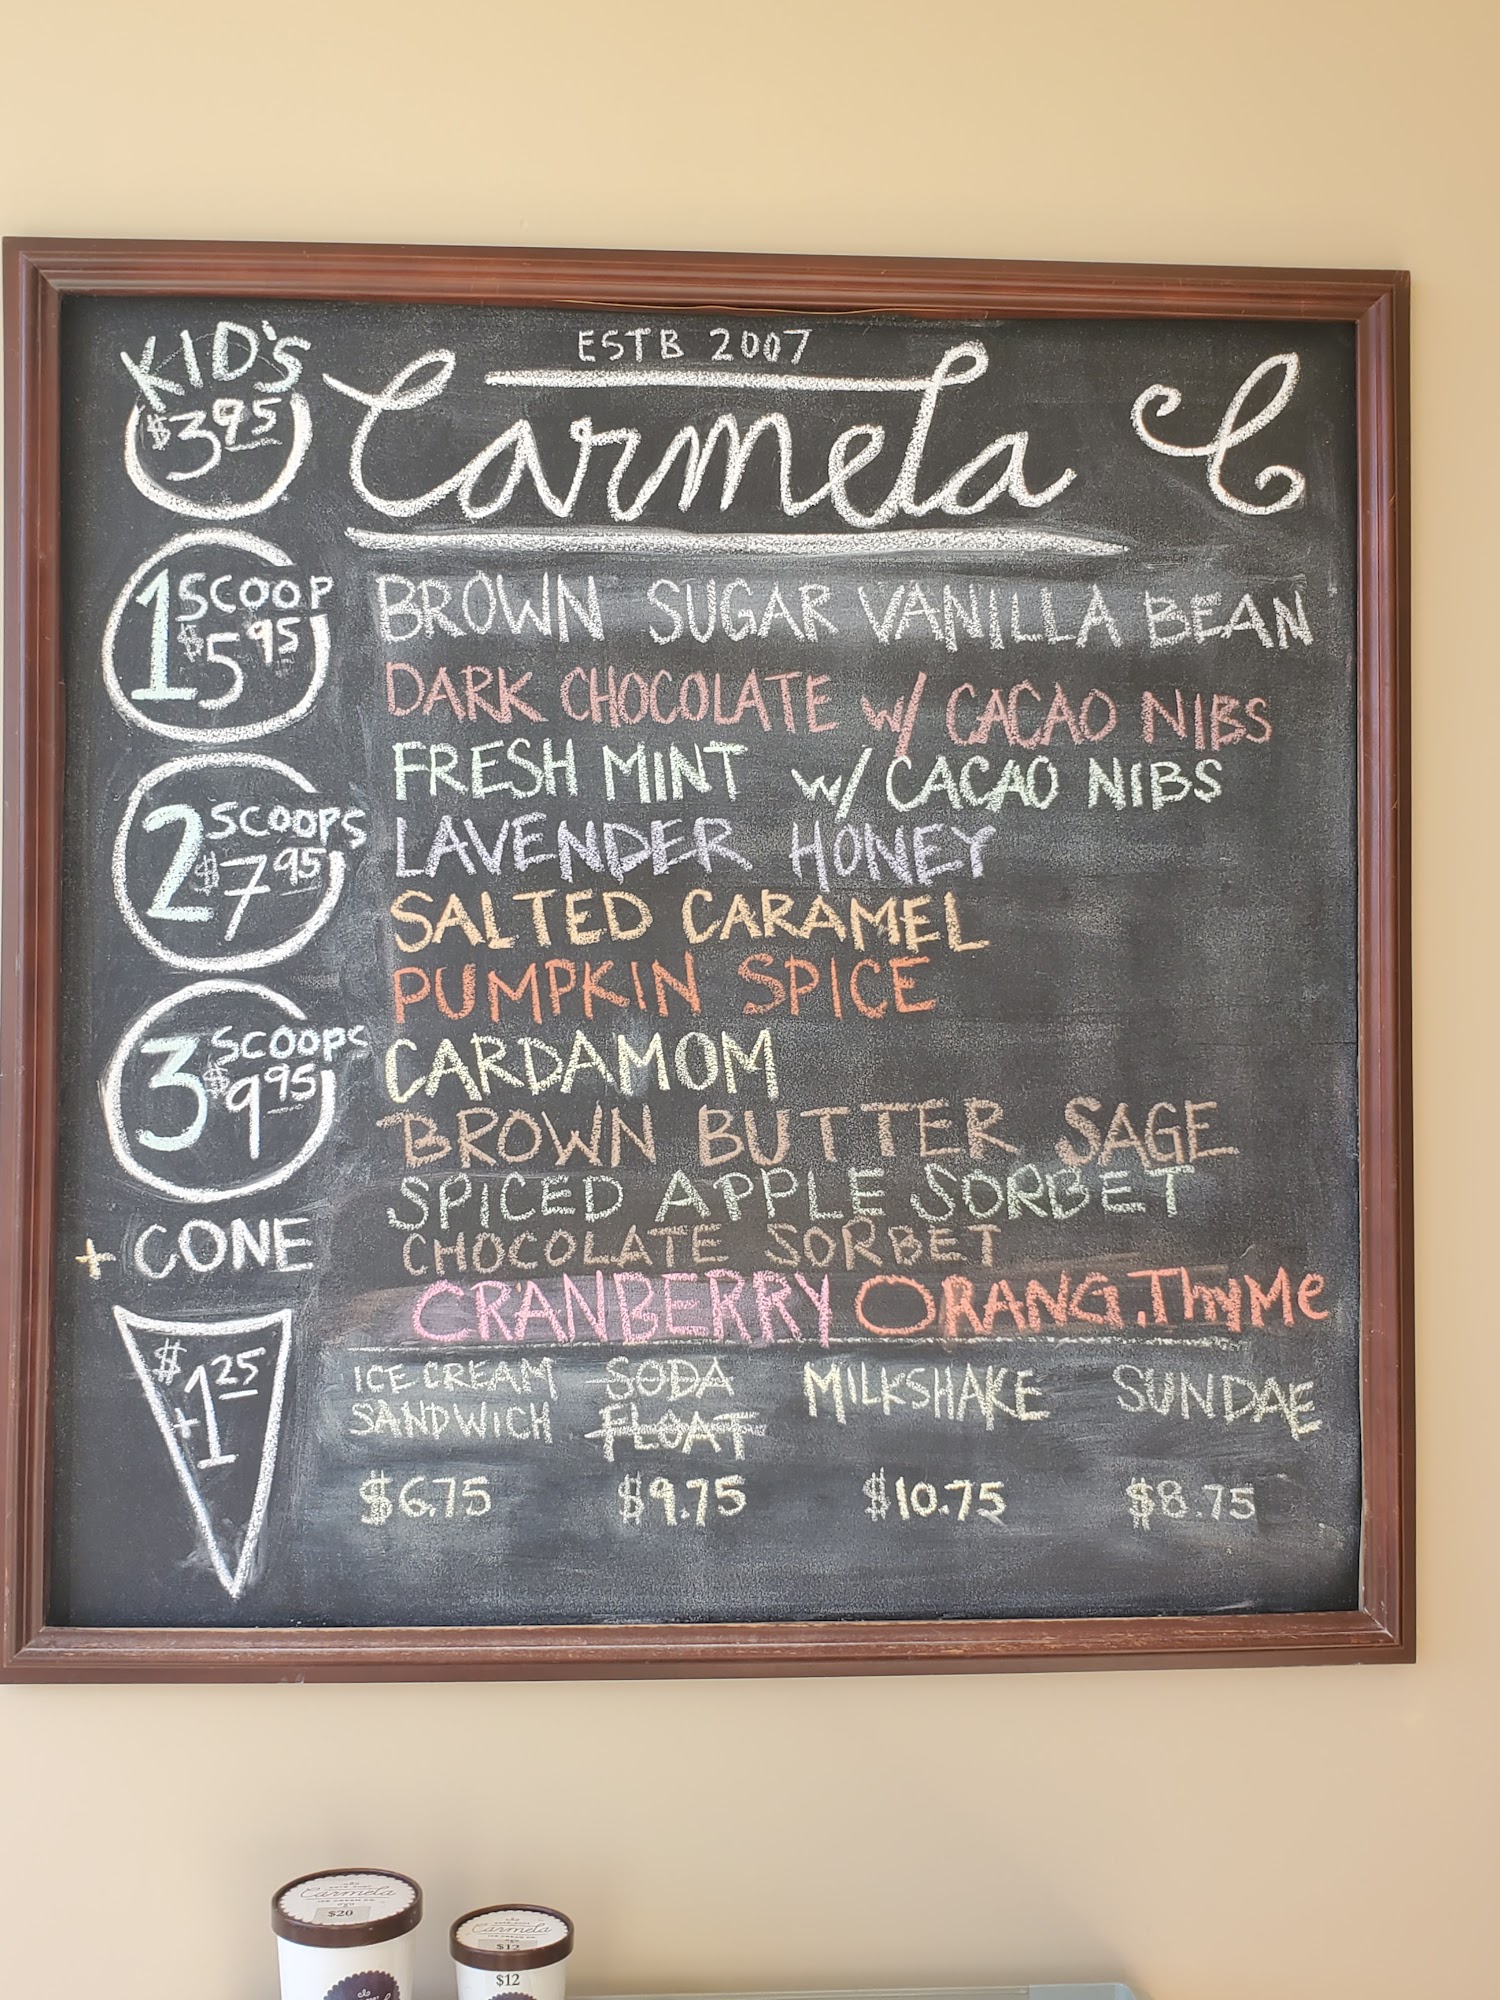 KID'S
$3.95
1 SCOOP
$5.95
2 SCOOPS
$7.95
3 SCOOPS
$9.95
+ CONE
$
+1.25
ESTB 2007
Carmela C
BROWN SUGAR VANILLA BEAN
DARK CHOCOLATE w/ CACAO NIBS
FRESH MINT w/ CACAO NIBS
LAVENDER HONEY
SALTED CARAMEL
PUMPKIN SPICE
CARDAMOM
BROWN BUTTER SAGE
SPICED APPLE SORBET
CHOCOLATE SORBET
CRANBERRY ORANG.ThyMe
ICE CREAM
SANDWICH
$6.75
SODA
FLOAT
$9.75
MILKSHAKE
$10.75
SUNDAE
$8.75
Carmela
$20
Carmela
$12
$12